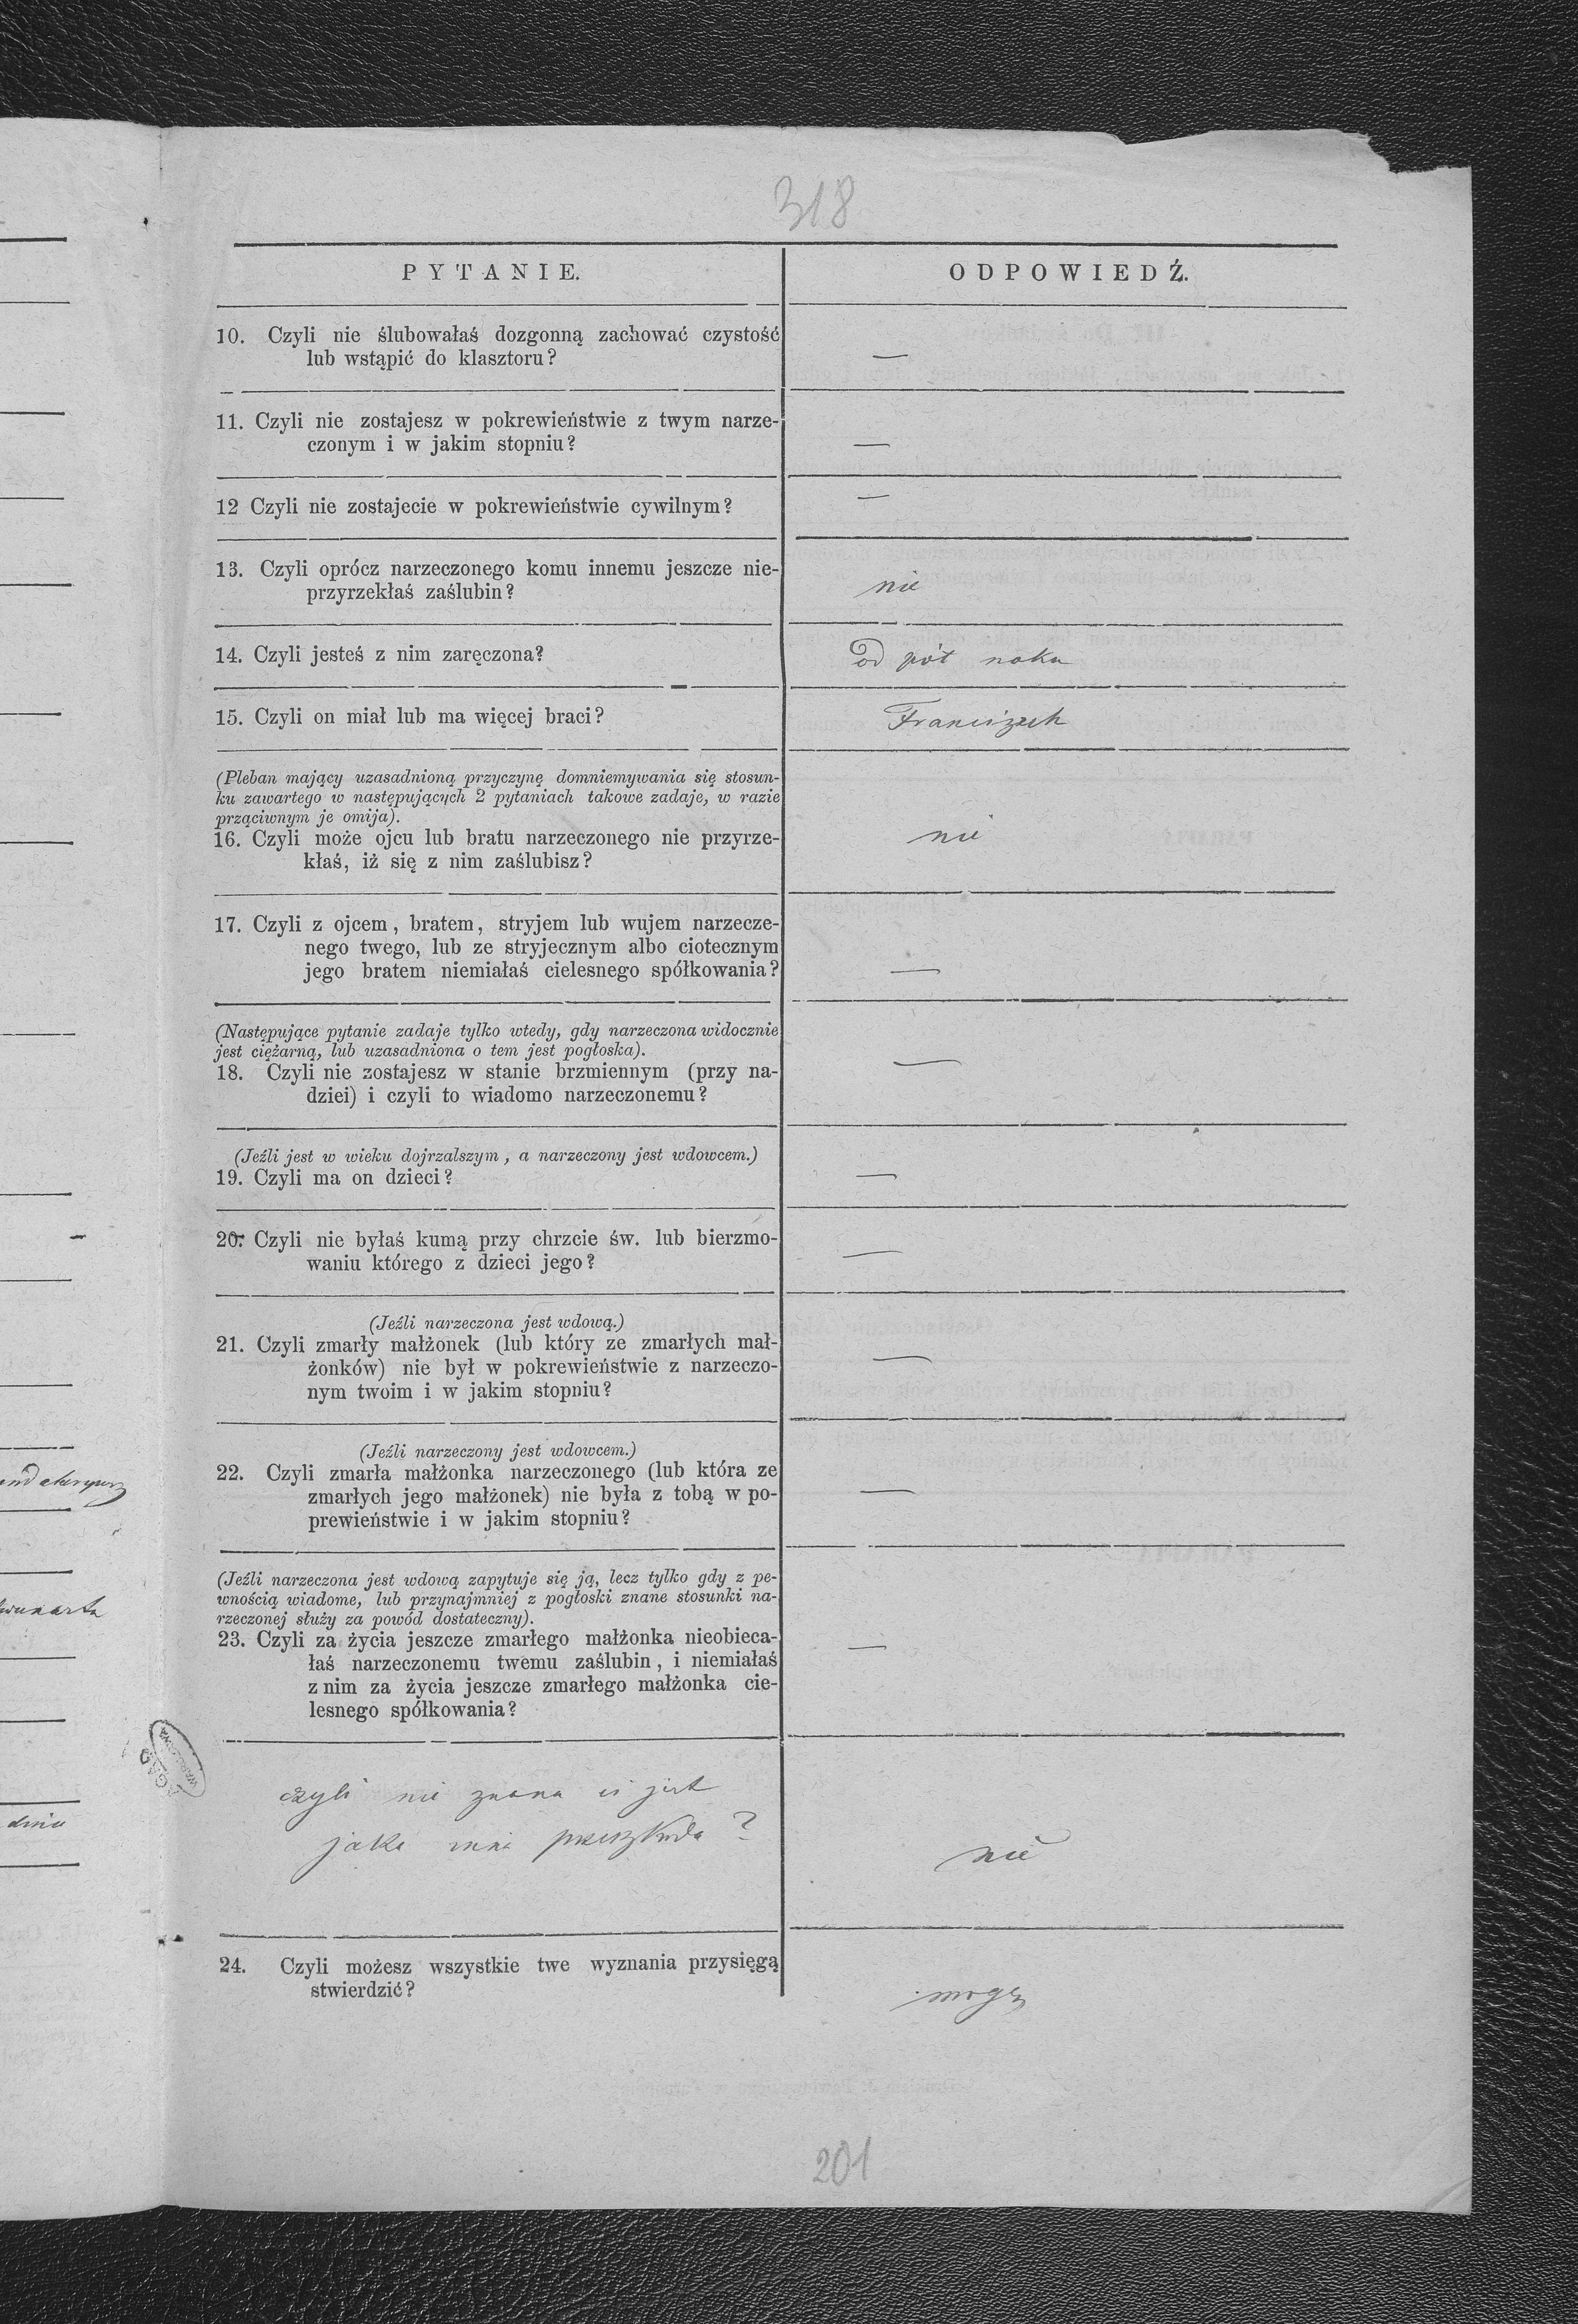 318
PYTANIE.
ODPOWIEDŹ.
10. Czyli nie ślubowałaś dozgonną zachować czystość
lub wstąpić do klasztoru?
—
11. Czyli nie zostajesz w pokrewieństwie z twym narze-
czonym i w jakim stopniu?
—
12 Czyli nie zostajecie w pokrewieństwie cywilnym?
—
13. Czyli oprócz narzeczonego komu innemu jeszcze nie-
przyrzekłaś zaślubin?
nie
14. Czyli jesteś z nim zaręczona?
od pół roku
15. Czyli on miał lub ma więcej braci?
Franciszek
(Pleban mający uzasadnioną przyczynę domniemywania się stosun-
ku zawartego w następujących 2 pytaniach takowe zadaje, w razie
prząciwnym je omija).
16. Czyli może ojcu lub bratu narzeczonego nie przyrze-
kłaś, iż się z nim zaślubisz?
nie
17. Czyli z ojcem, bratem, stryjem lub wujem narzecze-
nego twego, lub ze stryjecznym albo ciotecznym
jego bratem niemiałaś cielesnego spółkowania?
—
(Następujące pytanie zadaje tylko wtedy, gdy narzeczona widocznie
jest ciężarną, lub uzasadniona o tem jest pogłoska).
18. Czyli nie zostajesz w stanie brzmiennym (przy na-
dziei) i czyli to wiadomo narzeczonemu?
—
(Jeźli jest w wieku dojrzalszym, a narzeczony jest wdowcem.)
19. Czyli ma on dzieci?
—
20. Czyli nie byłaś kumą przy chrzcie św. lub bierzmo-
waniu którego z dzieci jego?
—
(Jeźli narzeczona jest wdową.)
21. Czyli zmarły małżonek (lub który ze zmarłych mał-
żonków) nie był w pokrewieństwie z narzeczo-
nym twoim i w jakim stopniu?
—
(Jeźli narzeczony jest wdowcem.)
22. Czyli zmarła małżonka narzeczonego (lub która ze
zmarłych jego małżonek) nie była z tobą w po-
prewieństwie i w jakim stopniu?
—
(Jeźli narzeczona jest wdową zapytuje się ją, lecz tylko gdy z pe-
wnością wiadome, lub przynajmniej z pogłoski znane stosunki na-
rzeczonej służy za powód dostateczny).
23. Czyli za życia jeszcze zmarłego małżonka nieobieca-
łaś narzeczonemu twemu zaślubin, i niemiałaś
z nim za życia jeszcze zmarłego małżonka cie-
lesnego spółkowania?
—
czyli nie znana ci jest
jaka inna przeszkoda?
nie
24. Czyli możesz wszystkie twe wyznania przysięgą
stwierdzić?
mogę
201
AGAD
WARSZAWA
dniu